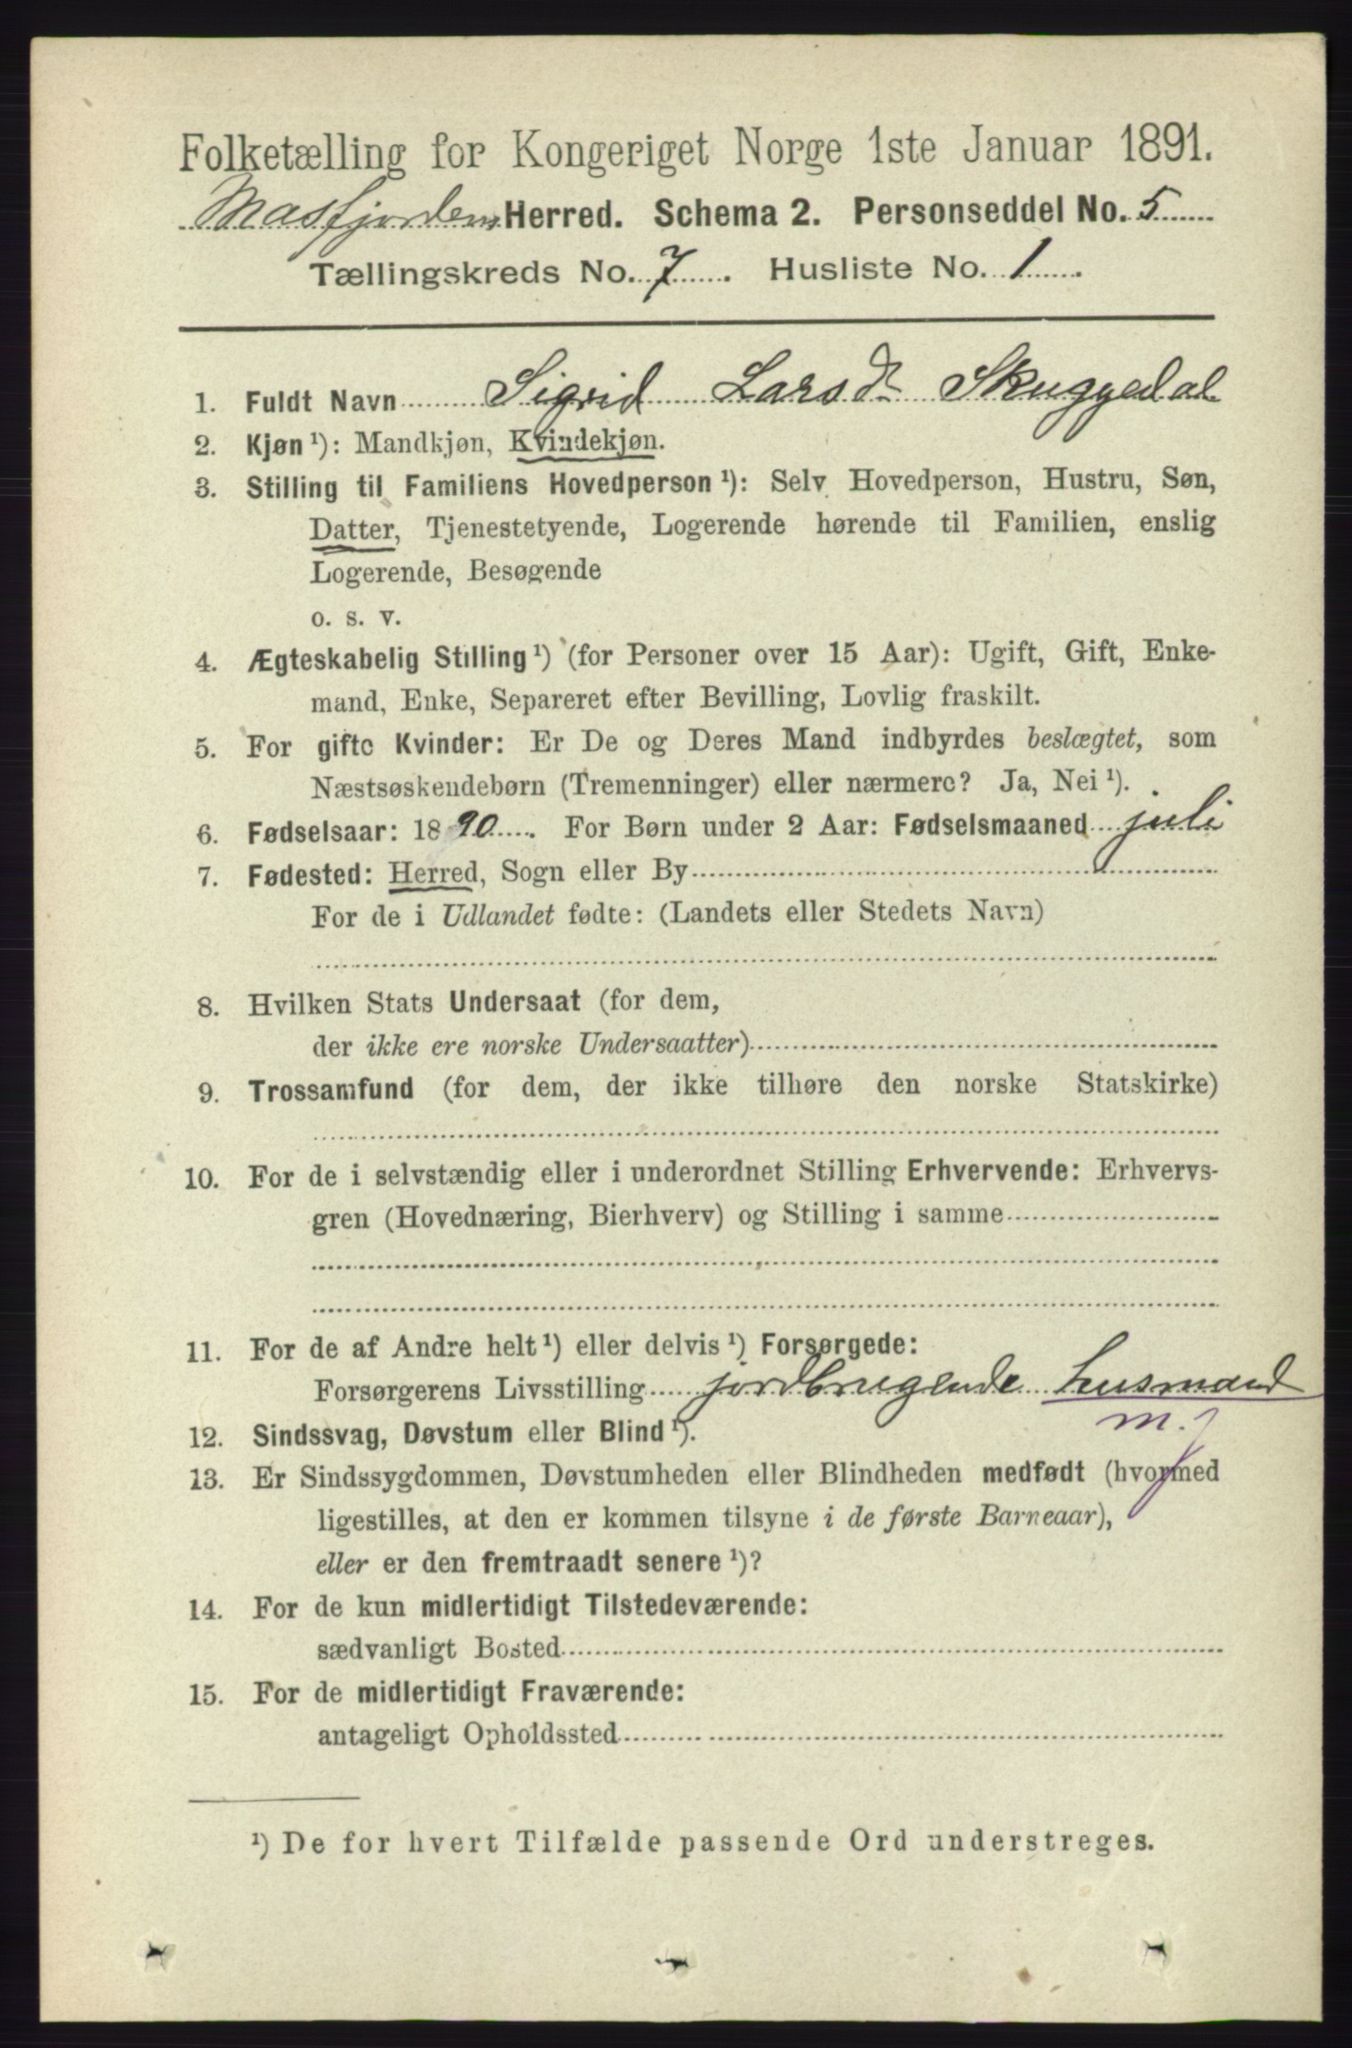 Folketælling for Kongeriget Norge 1ste Januar 1891.
Masfjordens Herred. Schema 2. Personseddel No. 5
Tællingskreds No. 7. Husliste No. 1.
1. Fuldt Navn Sigrid Larsd Skuggedal
2. Kjøn ¹): Mandkjøn, Kvindekjøn.
3. Stilling til Familiens Hovedperson ¹): Selv Hovedperson, Hustru, Søn,
Datter, Tjenestetyende, Logerende hørende til Familien, enslig
Logerende, Besøgende
o. s. v.
4. Ægteskabelig Stilling ¹) (for Personer over 15 Aar): Ugift, Gift, Enke-
mand, Enke, Separeret efter Bevilling, Lovlig fraskilt.
5. For gifte Kvinder: Er De og Deres Mand indbyrdes beslægtet, som
Næstsøskendebørn (Tremenninger) eller nærmere? Ja, Nei ¹).
6. Fødselsaar: 1890. For Børn under 2 Aar: Fødselsmaaned juli
7. Fødested: Herred, Sogn eller By
For de i Udlandet fødte: (Landets eller Stedets Navn)
8. Hvilken Stats Undersaat (for dem,
der ikke ere norske Undersaatter)
9. Trossamfund (for dem, der ikke tilhøre den norske Statskirke)
10. For de i selvstændig eller i underordnet Stilling Erhvervende: Erhvervs-
gren (Hovednæring, Bierhverv) og Stilling i samme
11. For de af Andre helt ¹) eller delvis ¹) Forsørgede:
Forsørgerens Livsstilling jordbrugende husmand
m. j
12. Sindssvag, Døvstum eller Blind ¹).
13. Er Sindssygdommen, Døvstumheden eller Blindheden medfødt (hvormed
ligestilles, at den er kommen tilsyne i de første Barneaar),
eller er den fremtraadt senere ¹)?
14. For de kun midlertidigt Tilstedeværende:
sædvanligt Bosted
15. For de midlertidigt Fraværende:
antageligt Opholdssted
¹) De for hvert Tilfælde passende Ord understreges.